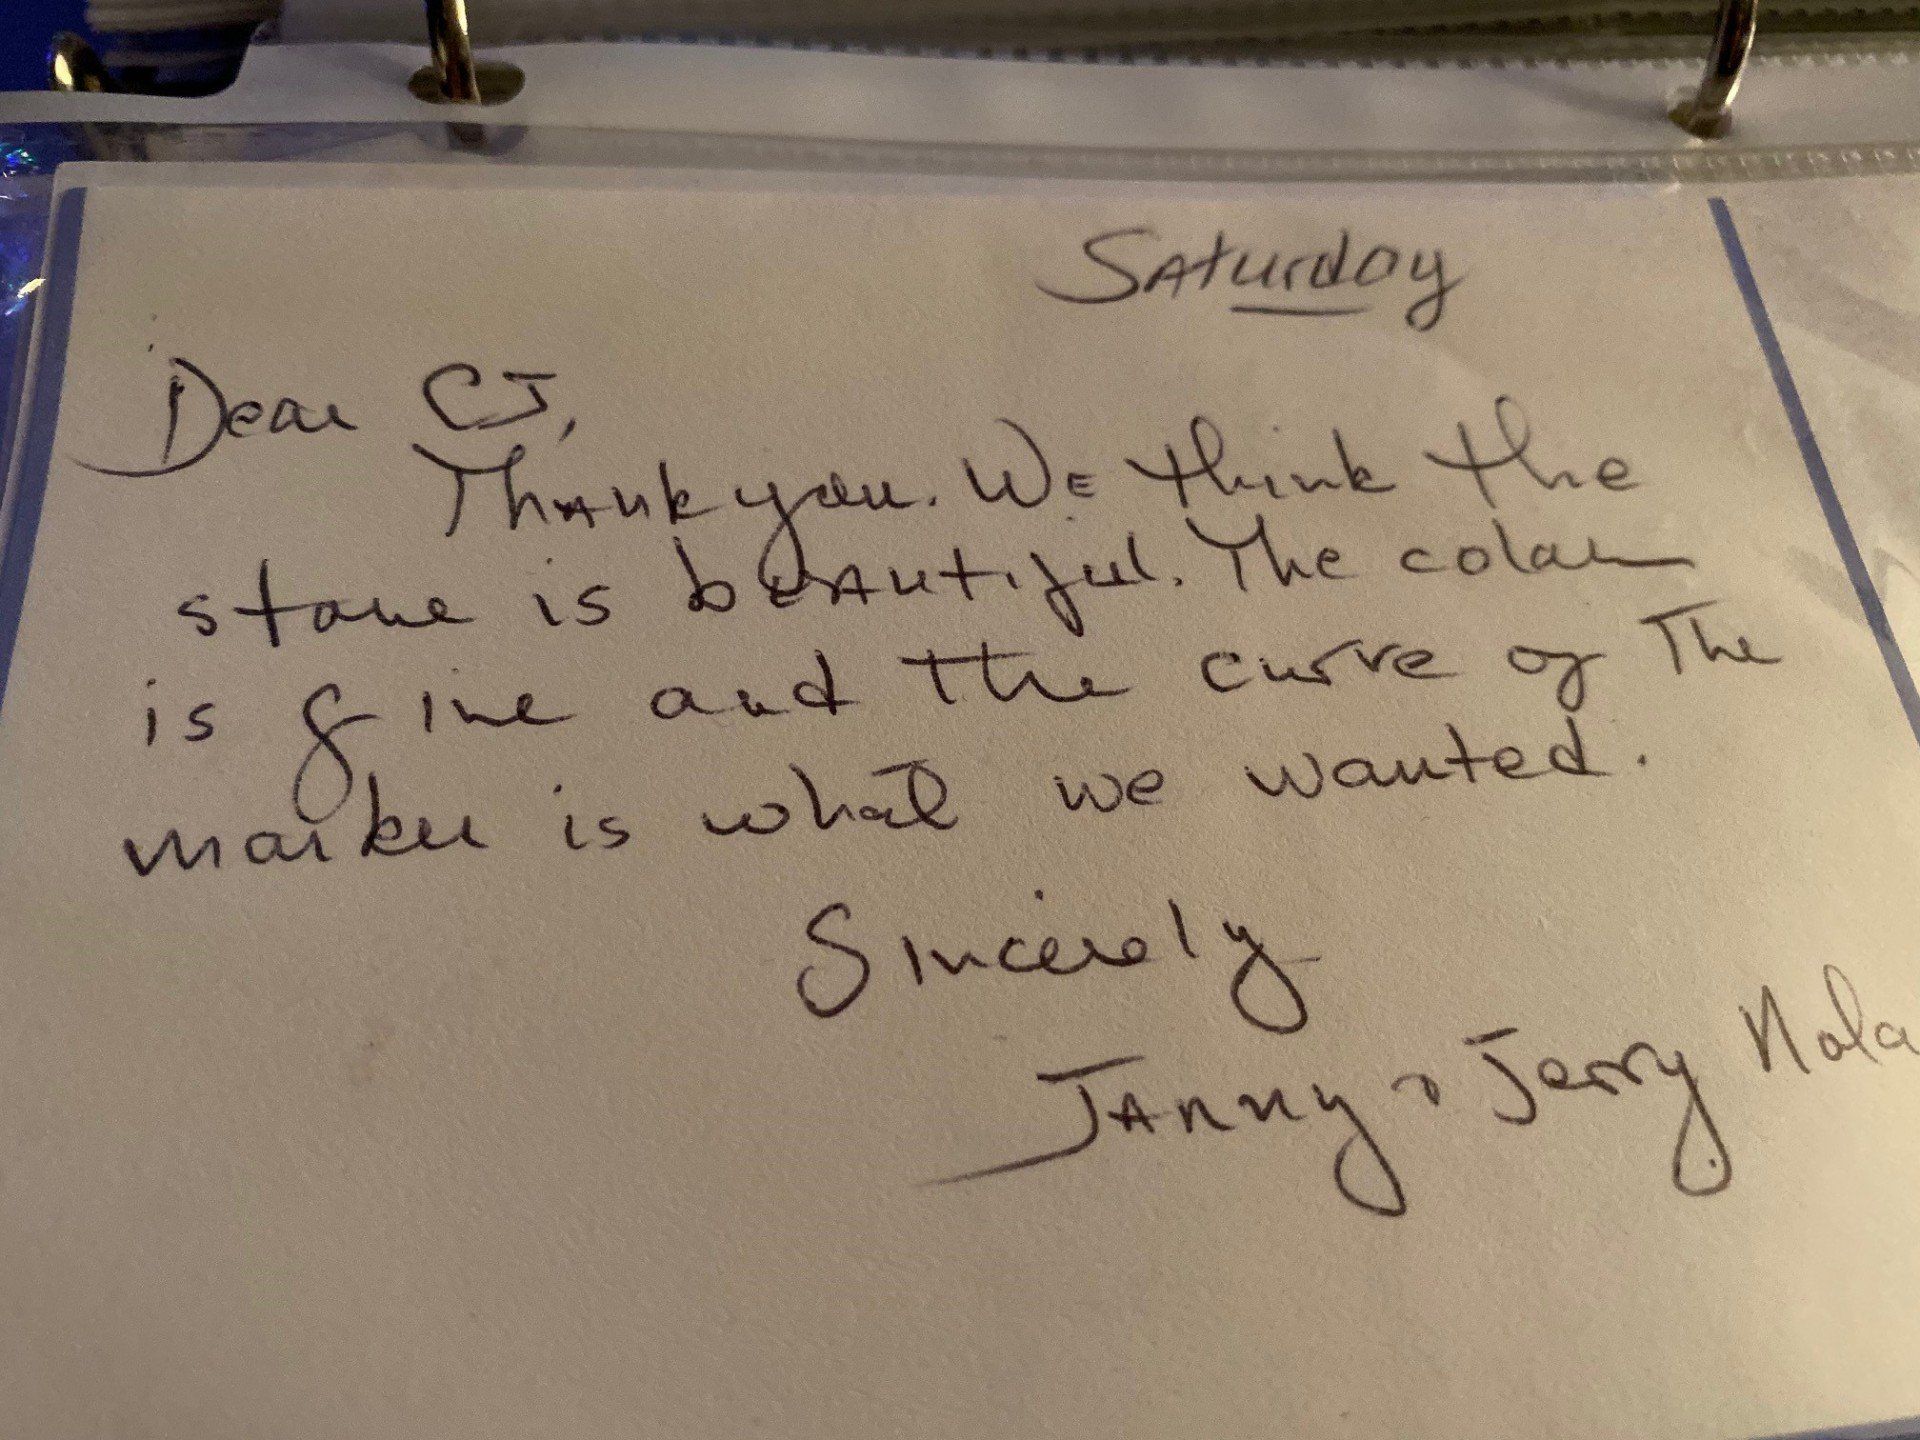 Saturday
Dear CJ,
Thank you. We think the
stone is beautiful. The color
is fine and the curve of The
marker is what we wanted.
Sincerely
Janny & Jerry Nola